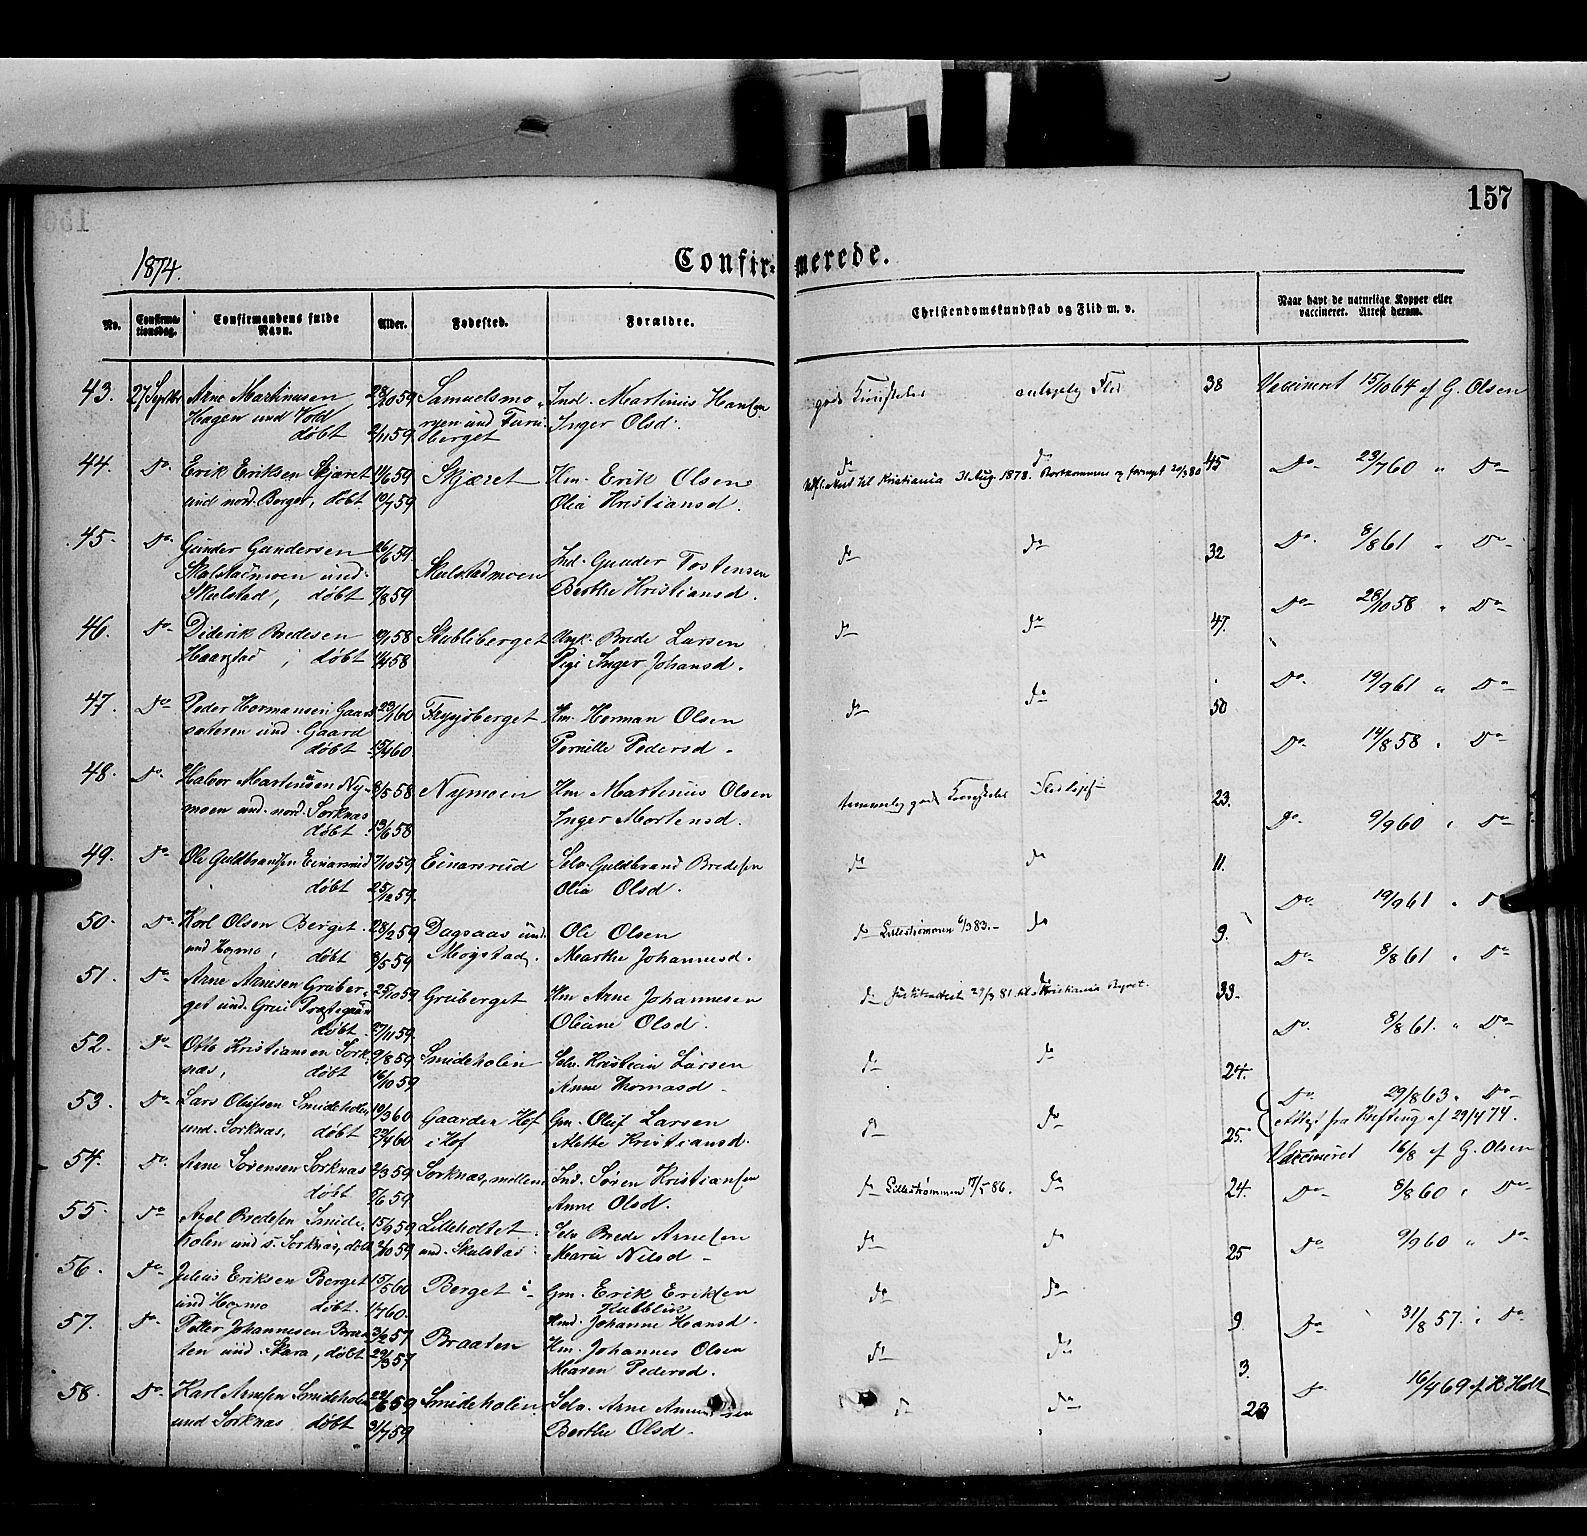 157
1874.
Confir- merede.
No.
Confirma-
tionsdag.
Confirmandens fulde
Navn.
Alder.
Fødested.
Forældre.
Christendomskundskab og Flid m. v.
Naar havt de naturlige Kopper eller
vaccineret. Attest derom.
43. 27 Septbr Arne Martinusen 28/10 59 Samuelsmo Ind. Martinus Hansen gode Kundskaber Flid 38 Vaccineret 15/10 64 af G. Olsen
Hagen und Vold berget Inger Olsd.
døbt 2/11 59
44. Do. Erik Eriksen Skjæret 11/6 59 Skjæret Hm. Erik Olsen do do 45 Do. 23/7 60 " Do
und nord. Berget, døbt 10/7 59 Olia Kristiansd. til Kristiania 31 Aug. 1878.
45. Do. Gunder Gundersen 26/6 59 Skulstadmoen Ind. Gunder Tostensen do do 32 Do. 8/8 61 " Do
Skulstadmoen und. Berthe Kristiansd.
Skulstad, døbt 7/8 59
46. Do. Diderik Bredesen 10/1 58 Stubliberget Ungk. Brede Larsen do do 47. Do 28/10 58 " Do
Haarstad, døbt 11/4 58 Pige Inger Johansd.
47. Do Peder Hermansen Gaard 60 Flysjøberget Hm. Herman Olsen do do 50 Do. 19/9 61 " Do
sæteren und. Gaard Pernille Pedersd.
døbt 15/4 60
48. Do. Halvor Martinusen Ny- 8/5 58 Nymoen Hm Martinus Olsen temmelig gode Kundskaber Flid 23. Do. 14/8 58 " Do
moen und. nord. Sorknæs Inger Mortensd.
døbt 13/6 58
49. Do Ole Guldbrandsen Einarsrud 7/10 59 Einarsrud Selv. Guldbrand Bredesen do do 11. Do. 9/9 60 " Do
døbt 25/12 59 Olia Olsd.
50. Do Karl Olsen Berget 28/2 59 Dagsaas und Ole Olsen do Lillestrømmen 6/3 83. do 9. Do 19/9 61 " Do
und Hoxmo, døbt 8/5 59 Møystad. Marthe Johannesd.
51. Do Arne Arnesen Gruber- 25/10 59 Gruberget Hm Arne Johannesen do 29/3 81 til Kristiania do 33. Do 8/8 61 " Do
get und. Grue Prestegaard Oliane Olsd.
døbt 27/11 59.
52. Do Otto Kristiansen Sork- 9/8 59 Smideholen Selv. Kristian Larsen do do 24. Do. 8/8 61. " Do
næs, døbt 16/10 59 Anne Thomasd.
53. Do Lars Olufsen Smideholen 10/3 60 Gaarder Hof Gm. Oluf Larsen do do 25. Do 29/8 63 " Do
und. Sorknæs, døbt 22/4 60 i Hof Alette Kristiansd. attest fra Kefting af 29/4 74.
54. Do. Arne Sørensen Sorknæs 2/3 59 Sorknæs møllen Ind. Søren Kristiansen do Lillestrømmen 17/5 86. do 24. Vaccineret 16/8 af G. Olsen
døbt 5/6 59 Anne Olsd.
55. Do Axel Bredesen Smide- 15/9 59 Lilleholtet Selv Brede Arnesen do do 25 Do 8/8 60 " Do
holen und s. Sorknæs, døbt 2/10 59 und. Skulstad Marie Nilsd
56. Do Julius Eriksen Berget 15/5 60 Berget Gm. Erik Eriksen do do 9 Do 9/9 60 " Do
und Hoxmo døbt. 1/7 60. Kubbling
Hmd. Johanne Hansd.
57. Do Petter Johannesen Braa- 3/2 57 Braaten Hm. Johannes Olsen do do 3. Do 31/8 57. " Do
ten und. Skara, døbt 22/3 57 Maren Pedersd.
58. Do Karl Arnesen Smideholen 22/6 59 Smideholen Selv. Arne do do 23 Do 16/4 69 af H Holt
und Sorknæs døbt 31/7 59 Berthe Olsd.